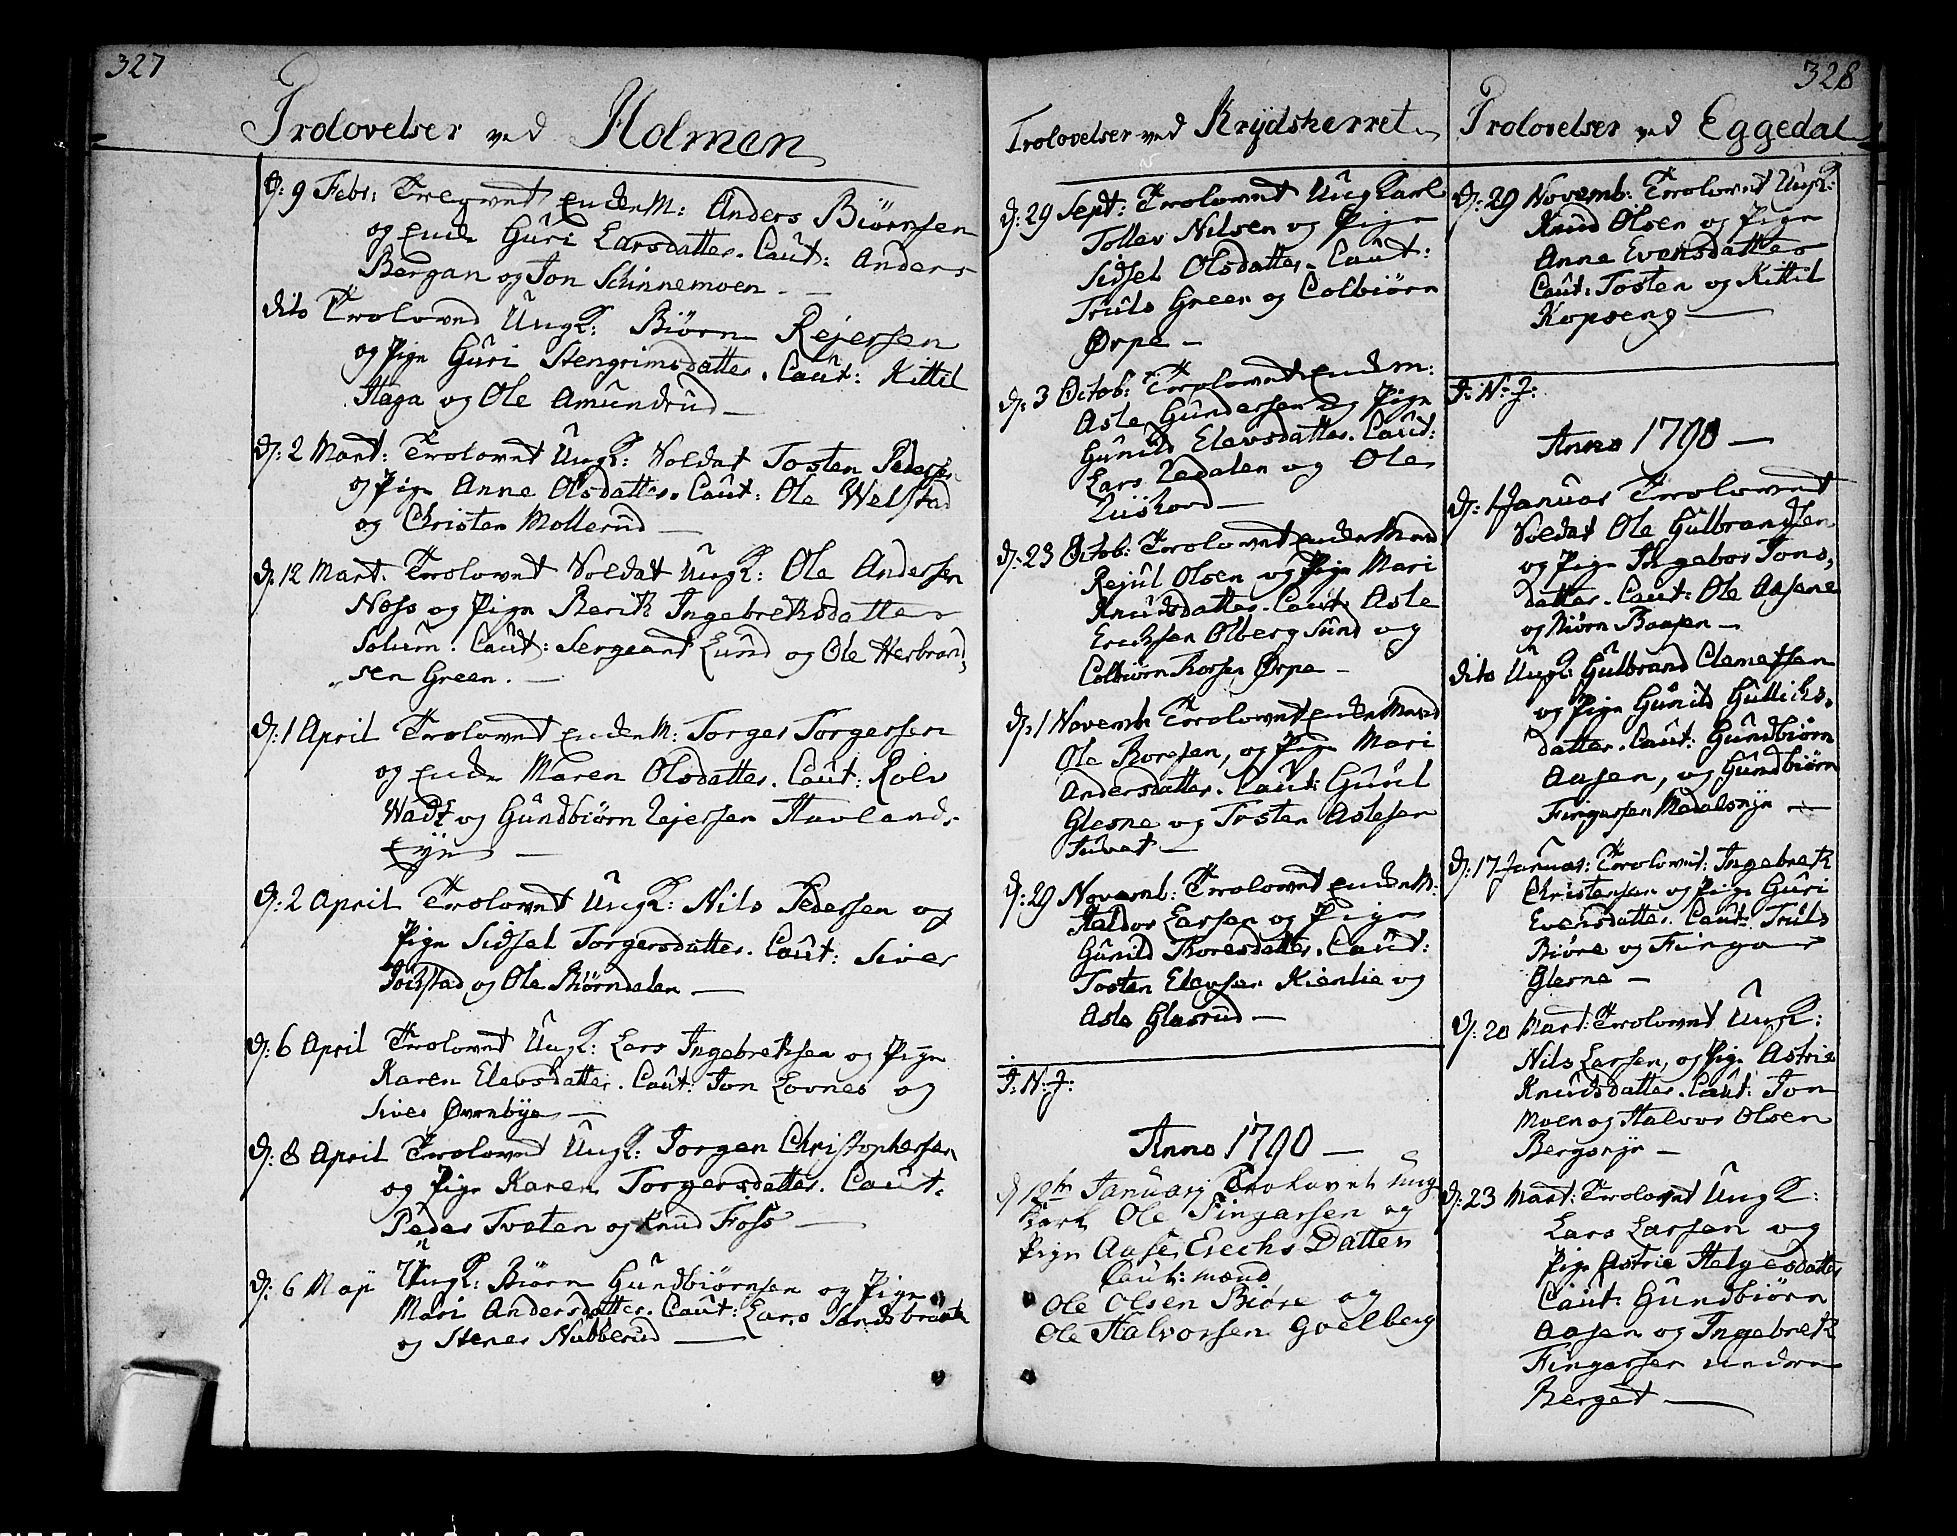 327
Trolovelser ved Holmen
D: 9 Febr: Trolovnt EnckeM: Anders Biørnsen
og Encke Guri Larsdatter. Caut: Anders
Bergan og Jon Skinnemoen.
dito Trolovnd UngK: Biørn Rejersen
og Pige Guri Stengrimsdatter. Caut: Kittil
Haga og Ole Amundrud
D: 2 Mart: Trolovnt UngK: Soldat Tosten Pedersen
og Pige Anne Olsdatter. Caut: Ole Welstad
og Christen Mollerud
D: 12 Mart. Trolovnt Soldat UngK: Ole Andersen
Næss og Pige Berit Ingebretsdatter
Solum. Caut: Sergeant Lund og Ole Herbrand,
sen Green.
D: 1 April Trolovnt EnckeM: Torger Torgersen
og Encke Maren Olsdatter. Caut: Rolv
og Gundbiørn Rejersen Havlands
Eye
D: 2 April Trolovnt UngK: Nils Pedersen og
Pige Sidsel Torgersdatter. Caut: Siver
Jokstad og Ole Biørndalen
D: 6 April Trolovnt UngK: Lars Ingebretsen og Pige
Karen Elevsdatter. Caut: Jon Lovnes og
Siver Øvrebye
D: 8 April Trolovnt UngK: Jørgen Christophersen
og Pige Karen Torgersdatter. Caut.
Peder Tvæten og Knud Foss
D: 6 Maÿ UngK: Biørn Gundbiørnsen og Pige
Mari Andersdatter. Caut: Lars Sandsbraaten
og Stener Nubberud
Trolovelser ved Krydsherret
D: 29 Sept: Trolovnt UngKarl
Tollev Nilsen og Pige
Sidsel Olsdatter. Caut:
Truls Green og Colbiørn
Ørpe
D: 3 Octob: Trolovnt Enckem:
Asle Gundersen og Pige
Gunild Elevsdatter. Caut:
Lars og Ole
D: 23 Octob: Trolovnt EnckeMand
Rejul Olsen og Pige Mari
Knudsdatter. Caut: Asle
Ericksen Olbergsund og
Colbiørn Borsen Ørpe
D: 1 Novemb: Trolovnt EnckeMand
Ole Boresen, og Pige Mari
Andersdatter. Caut: Guul
Glesne og Tosten Aslesen
Tuvet
D: 29 Novemb: Trolovnt EnckeM:
Haldor Larsen og Pige
Gunild Boresdatter. Caut:
Tosten Elevsen Kienlie og
Asle Glasrud
I: N: J:
Anno 1790
D 12te Januarj Trolovet Ung
Karl Ole Fingarsen og
Pige Aase Erechs Datter
Caut: mænd
Ole Olsen Biøre og
Ole Halvorsen Goelberg
328
Trolovelser ved Eggedal
D: 29 Novemb: Trolovnt UngK:
Knud Olsen og Pige
Anne Evensdatter
Caut: Tosten og Kittil
Kopseng
I: N: J:
Anno 1790
D: 1 Januar Trolovnt
Soldat Ole Gulbrandsen
og Pige Ingebor Jons,
datter. Caut: Ole Aasene
og Biørn Baasen
dito UngK: Gulbrand Clemetsen
og Pige Gunild Gullichs,
datter. Caut: Gundbiørn
Aasen, og Gundbiørn
Fingarsen Medalsnÿe
D: 17 Januar: Trolovnt: Ingebreth
Christensen og Pige Guri
Evensdatter. Caut: Truls
Biøre og Fingar
Glesne
D: 20 Mart: Trolovnt UngK:
Nils Larsen, og Pige Astrie
Knudsdatter. Caut: Jon
Moen og Halvor Olsen
Bergsnje
D: 23 Mart: Trolovnt UngK:
Lars Larsen og
Pige Astrie Helgesdatter
Caut: Gundbiørn
Aasen og Ingebreth
Fingarsen undern
Berget